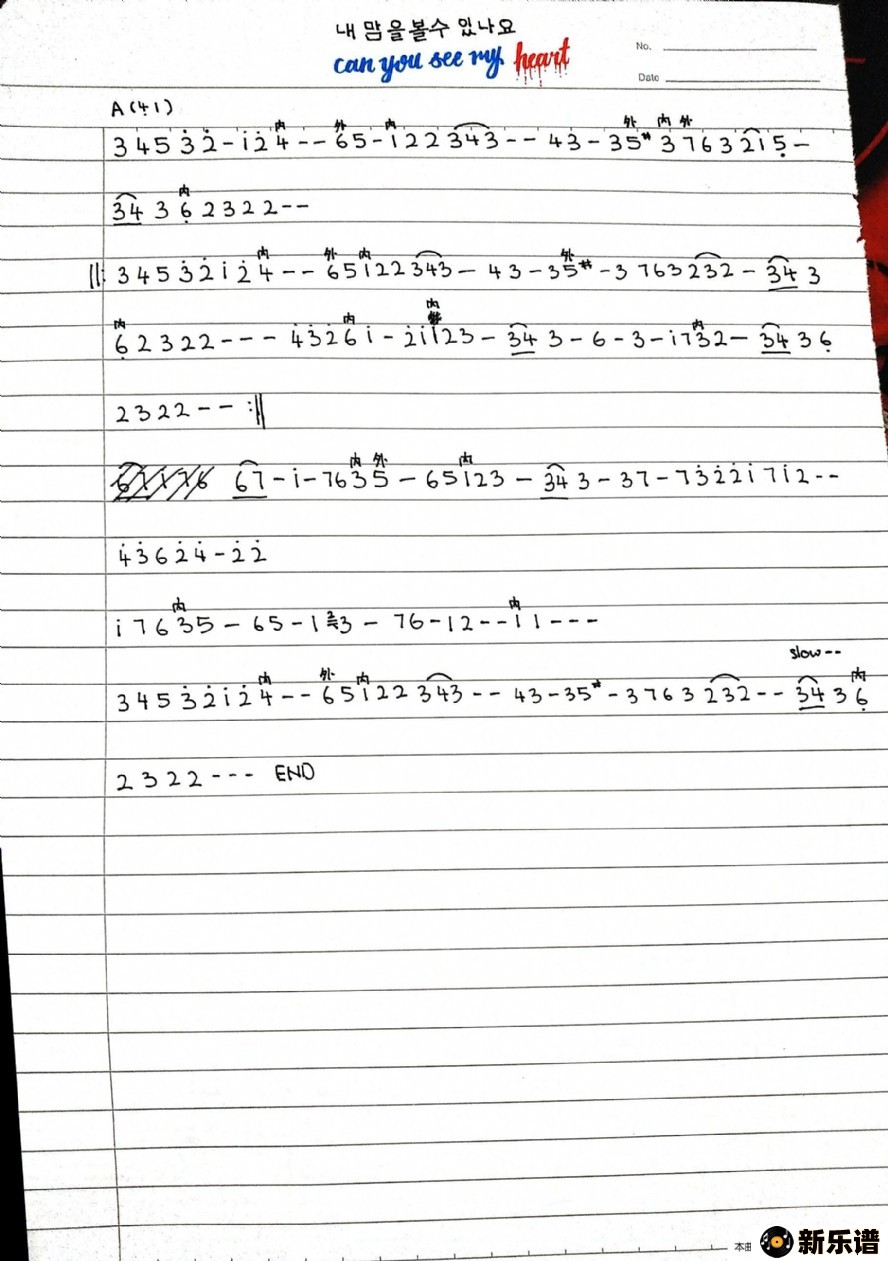 내 맘을볼수 있나요
can you see my heart
No.
Date
A (4 1)
内 外 内 外 内 外
3 4 5 3̇ 2̇ - i 2̇ 4̇ - - 6 5 - 1̇ 2 2 3 4 3 - - 4 3 - 3 5# 3 7 6 3 2 1 5̣ -
内
3 4 3 6̣ 2 3 2 2 - -
内 外 内 外
||: 3 4 5 3̇ 2̇ i 2̇ 4̇ - - 6 5 1̇ 2 2 3 4 3 - 4 3 - 3 5# - 3 7 6 3 2 3 2 - 3 4 3
内 内 内 内
6̣ 2 3 2 2 - - - 4̇ 3̇ 2̇ 6 i - 2̇ i 1̇ 2 3 - 3 4 3 - 6 - 3 - i 7 3 2 - 3 4 3 6̣
2 3 2 2 - - :||
内 外 内
6 7 - i - 7 6 3 5 - 6 5 1̇ 2 3 - 3 4 3 - 3 7 - 7 3̇ 2̇ 2̇ i 7 i 2 - -
4̇ 3̇ 6 2̇ 4̇ - 2̇ 2̇
内 内
i 7 6 3 5 - 6 5 - 1 3 - 7 6 - 1 2 - - 1 1 - - -
slow--
内 外 内 内
3 4 5 3̇ 2̇ i 2̇ 4̇ - - 6 5 1̇ 2 2 3 4 3 - - 4 3 - 3 5# - 3 7 6 3 2 3 2 - - 3 4 3 6̣
2 3 2 2 - - - END
本曲
新乐谱